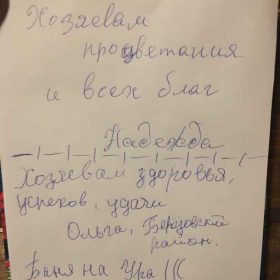 Хозяевам
процветания
и всех благ
Надежда
Хозяевам здоровья,
успехов, удачи
Ольга, Берёзовский
район.
Баня на Ура (((